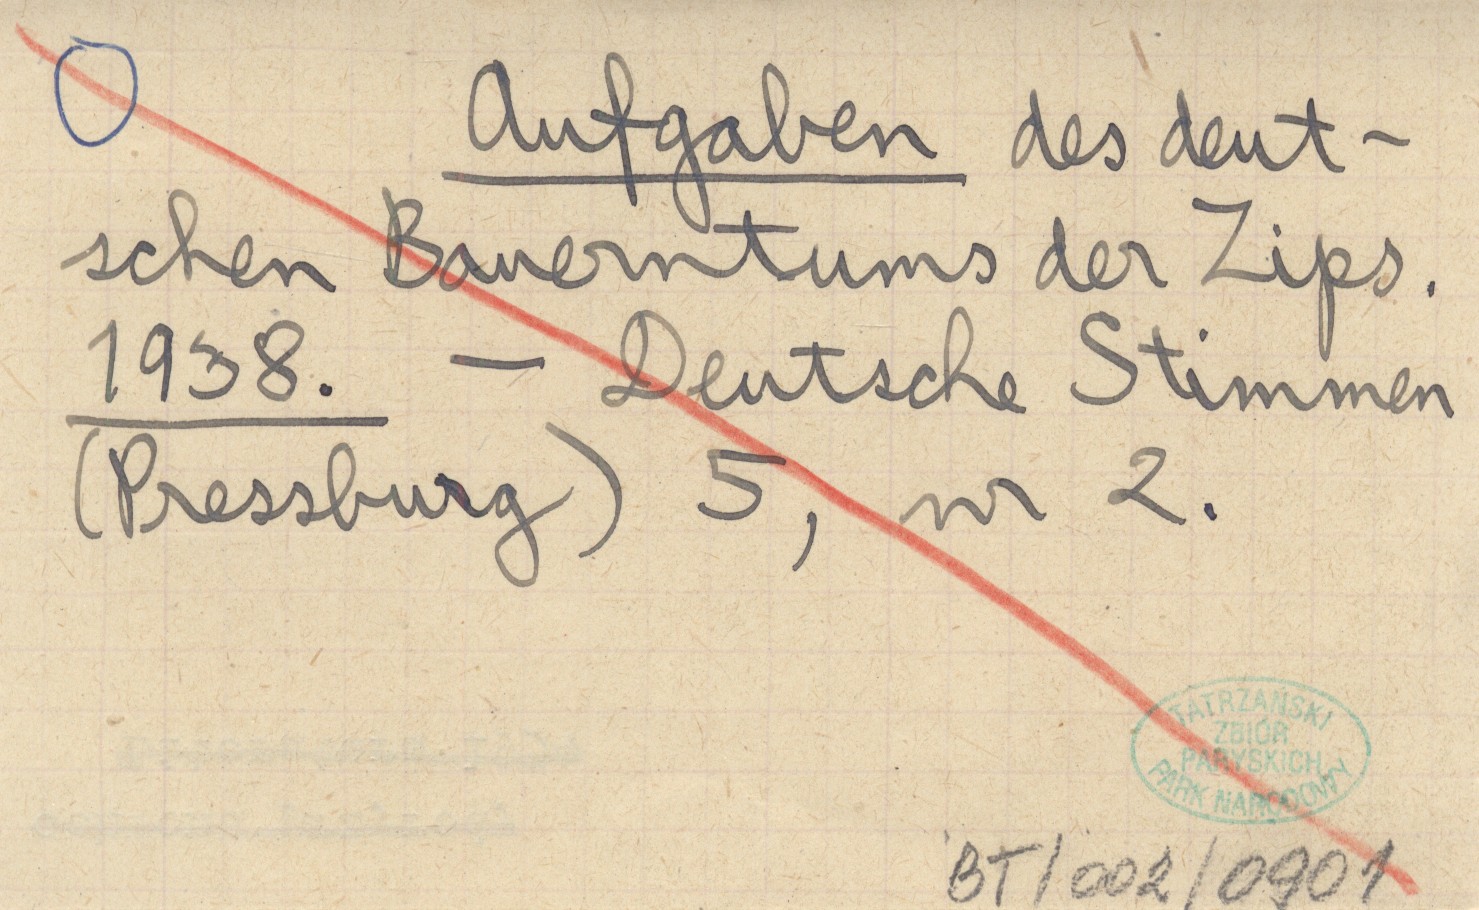 Aufgaben des deut-
schen Bauerntums der Zips.
1938. — Deutsche Stimmen
(Pressburg) 5, nr 2.
TATRZAŃSKI
ZBIÓR
PARYSKICH
PARK NARODOWY
BT/002/0901